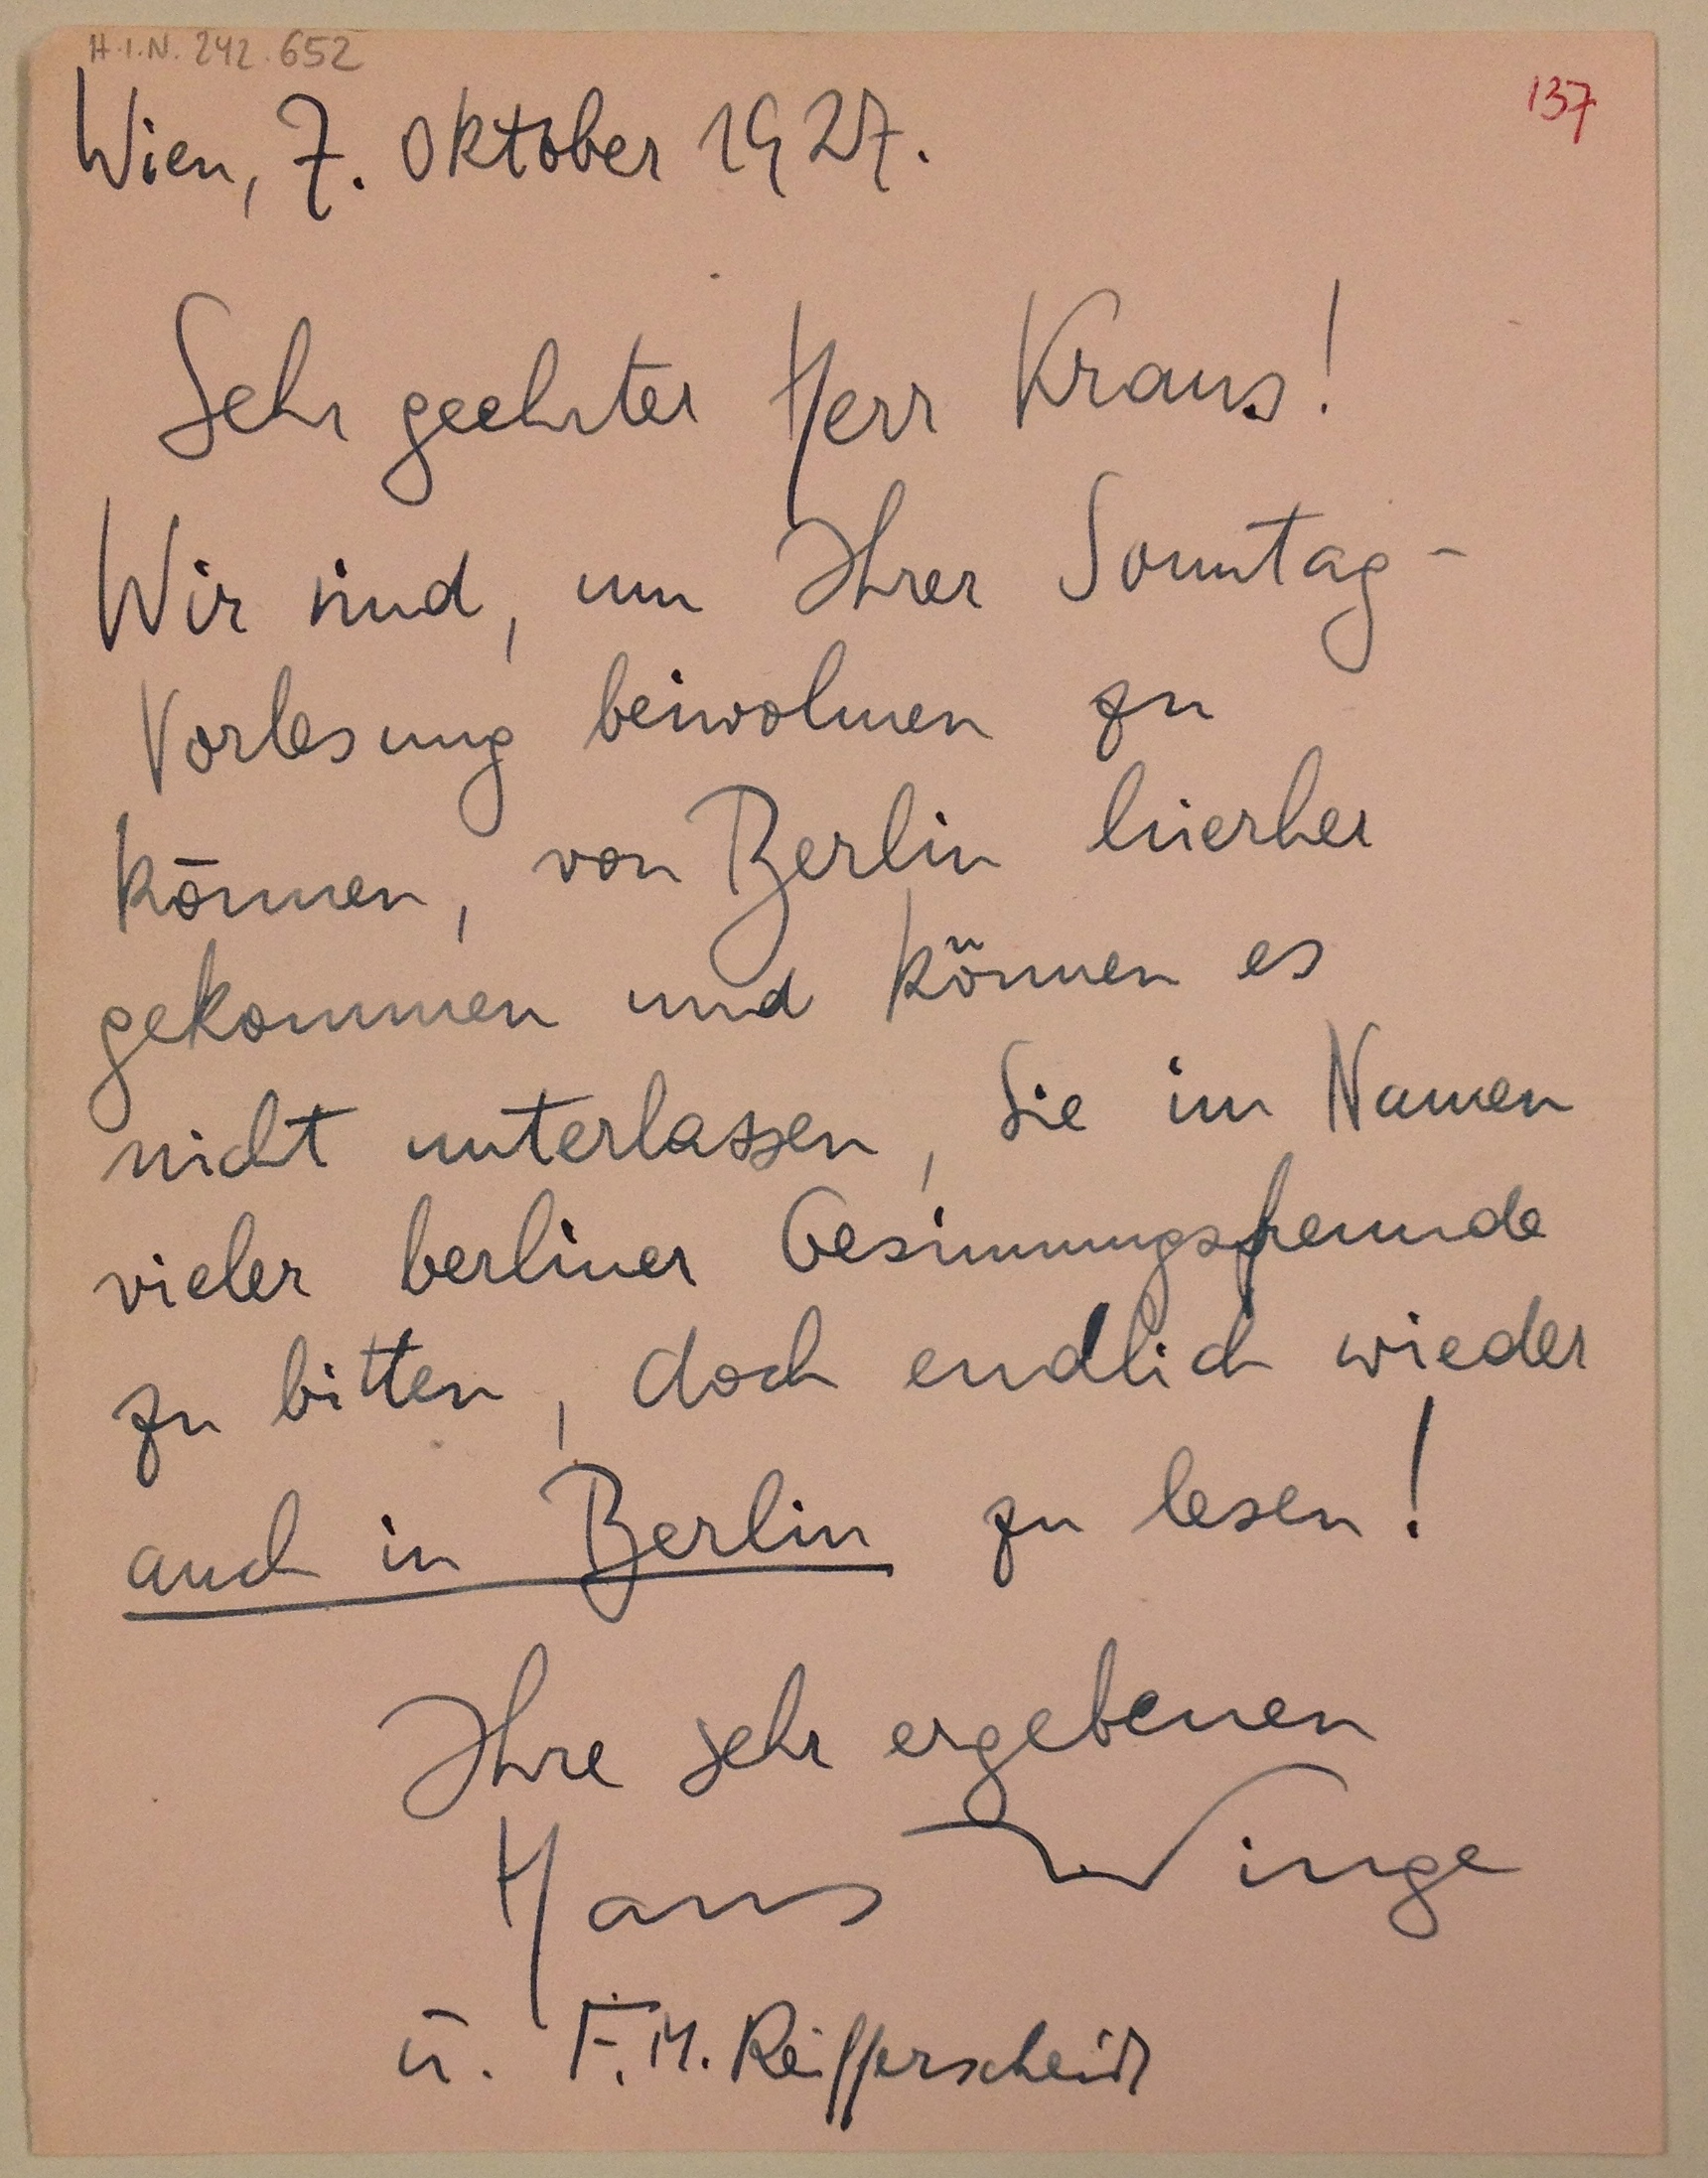 H.I.N. 242.652
137
Wien, 7. Oktober 1927.
Sehr geehrter Herr Kraus!
Wir sind, um Ihrer Sonntag-
Vorlesung beiwohnen zu
können, von Berlin hierher
gekommen und können es
nicht unterlassen, Sie im Namen
vieler berliner Gesinnungsfreunde
zu bitten, doch endlich wieder
auch in Berlin zu lesen!
Ihre sehr ergebenen
Hans Winge
u. F.M. Reifferscheidt